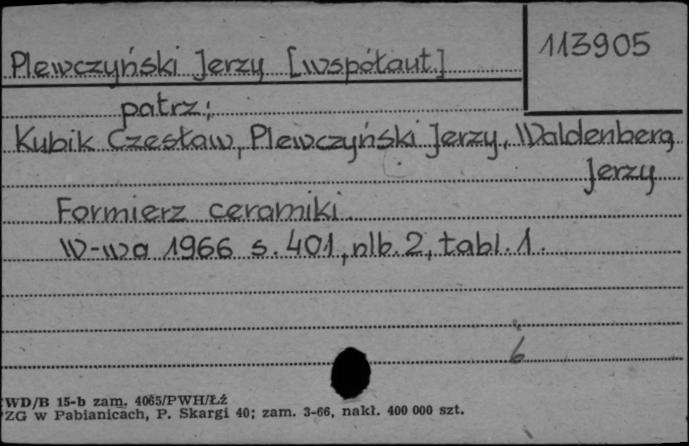 Plewczyński Jerzy [współaut.]
113905
patrz:
Kubik Czesław, Plewczyński Jerzy, Waldenberg
Jerzy
Formierz ceramiki.
W-wa 1966 s. 401, nlb. 2, tabl. 1.
6
WD/B 15-b zam. 4065/PWH/Łź
ZG w Pabianicach, P. Skargi 40; zam. 3-66, nakł. 400 000 szt.